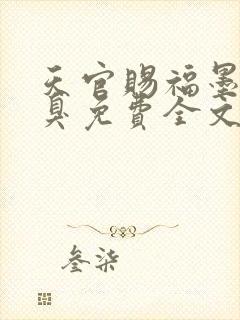 天官赐福墨
臭免费全文
叁柒